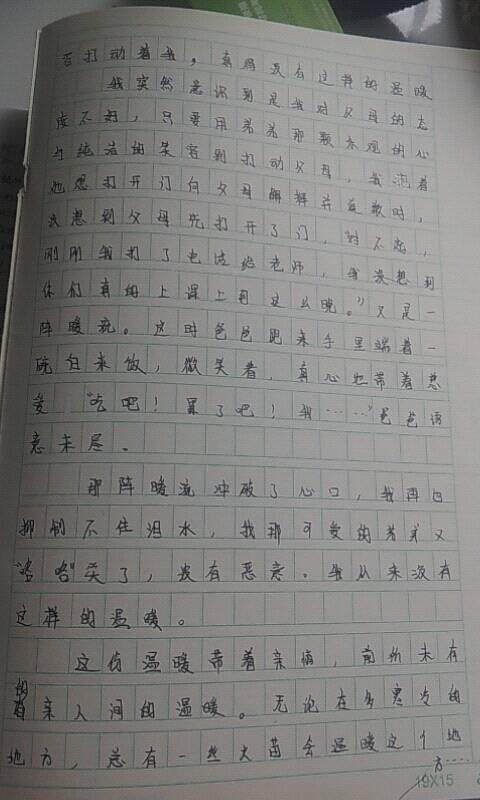 否打动着我，真的没有这样的温暖
我突然意识到是我对父母的态
度不好，只要用弟弟那颗乐观的心
与纯洁的笑容别打动父母，我流着
泪想打开门向父母解释并道歉时，
没想到父母先打开了门，“对不起，
刚刚我打了电话给老师，我没想到
你们真的上课上到这么晚。”又是一
阵暖流。这时爸爸跑来手里端着一
碗白米饭，微笑着，真心地带着慈
爱“吃吧！累了吧！我……”爸爸话
意未尽。
那阵暖流冲破了心口，我再也
抑制不住泪水，我那可爱的弟弟又
“咯咯”笑了，没有恶意。我从来没有
这样的温暖。
这份温暖带着亲情，前所未有
的亲人间的温暖。无论在多寒冷的
地方，总有一丝火苗会温暖这个地
方……
19X15